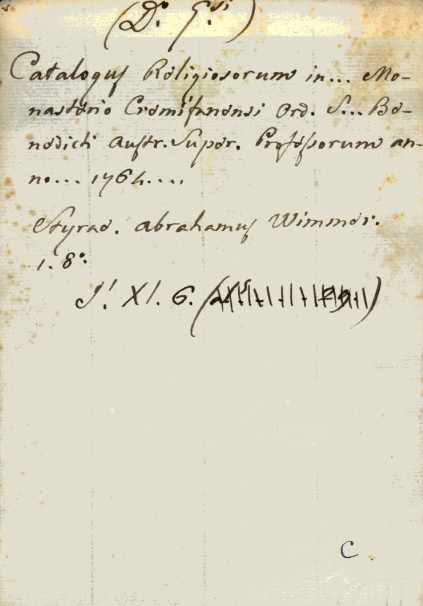 (D. G.si)
Catalogus Religiosorum in... Mo-
nasterio Cremifanensi Ord. S... Be-
nedicti Austr. Super. Professorum an-
no... 1764....
Styrae. Abrahamus Wimmer.
1. 8°.
J! XI. 6.
C